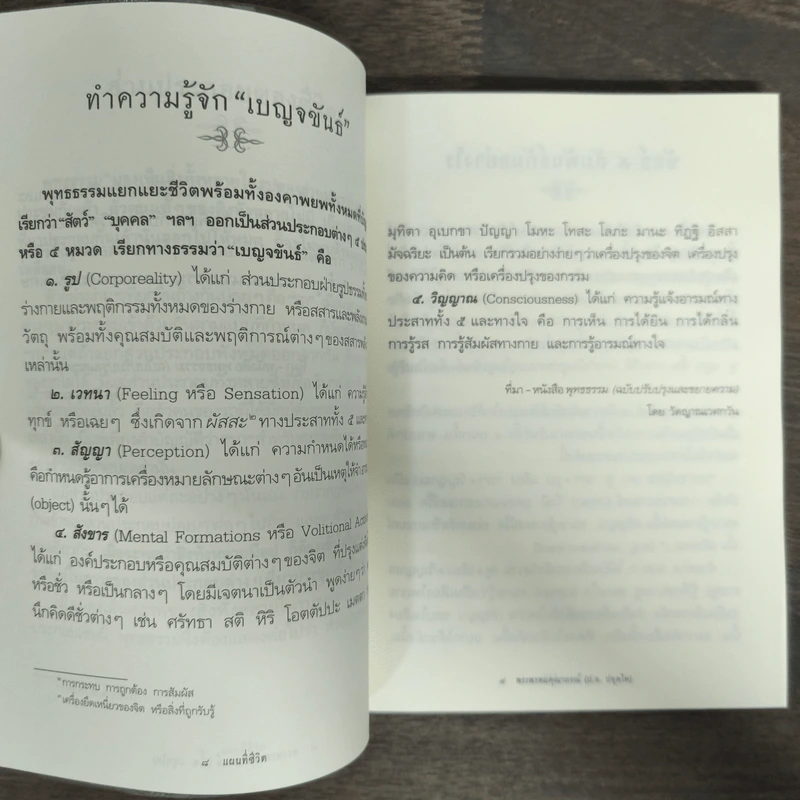 ทำความรู้จัก “เบญจขันธ์”
พุทธธรรมแยกแยะชีวิตพร้อมทั้งองคาพยพทั้งหมดที่
เรียกว่า “สัตว์” “บุคคล” ฯลฯ ออกเป็นส่วนประกอบต่างๆ ๕
หรือ ๕ หมวด เรียกทางธรรมว่า “เบญจขันธ์” คือ
๑. รูป (Corporeality) ได้แก่ ส่วนประกอบฝ่ายรูปธรรมทั้ง
ร่างกายและพฤติกรรมทั้งหมดของร่างกาย หรือสสารและพลังงาน
วัตถุ พร้อมทั้งคุณสมบัติและพฤติการณ์ต่างๆ ของสสาร
เหล่านั้น
๒. เวทนา (Feeling หรือ Sensation) ได้แก่ ความรู้
ทุกข์ หรือเฉยๆ ซึ่งเกิดจาก ผัสสะ๒ ทางประสาททั้ง ๕ และ
๓. สัญญา (Perception) ได้แก่ ความกำหนดได้หรือ
คือกำหนดรู้อาการเครื่องหมายลักษณะต่างๆ อันเป็นเหตุให้จำ
(object) นั้นๆ ได้
๔. สังขาร (Mental Formations หรือ Volitional
ได้แก่ องค์ประกอบหรือคุณสมบัติต่างๆ ของจิต ที่ปรุงแต่ง
หรือชั่ว หรือเป็นกลางๆ โดยมีเจตนาเป็นตัวนำ พูดง่ายๆ ว่า
นึกคิดดีชั่วต่างๆ เช่น ศรัทธา สติ หิริ โอตตัปปะ เมตตา
การกระทบ การถูกต้อง การสัมผัส
เครื่องยึดเหนี่ยวของจิต หรือสิ่งที่ถูกรับรู้
๘ แผนที่ชีวิต
มุทิตา อุเบกขา ปัญญา โมหะ โทสะ โลภะ มานะ ทิฏฐิ อิสสา
มัจฉริยะ เป็นต้น เรียกรวมอย่างง่ายๆ ว่าเครื่องปรุงของจิต เครื่องปรุง
ของความคิด หรือเครื่องปรุงของกรรม
๕. วิญญาณ (Consciousness) ได้แก่ ความรู้แจ้งอารมณ์ทาง
ประสาททั้ง ๕ และทางใจ คือ การเห็น การได้ยิน การได้กลิ่น
การรู้รส การรู้สัมผัสทางกาย และการรู้อารมณ์ทางใจ
ที่มา – หนังสือ พุทธธรรม (ฉบับปรับปรุงและขยายความ)
โดย วัดญาณเวศกวัน
๙ พระพรหมคุณาภรณ์ (ป.อ. ปยุตฺโต)